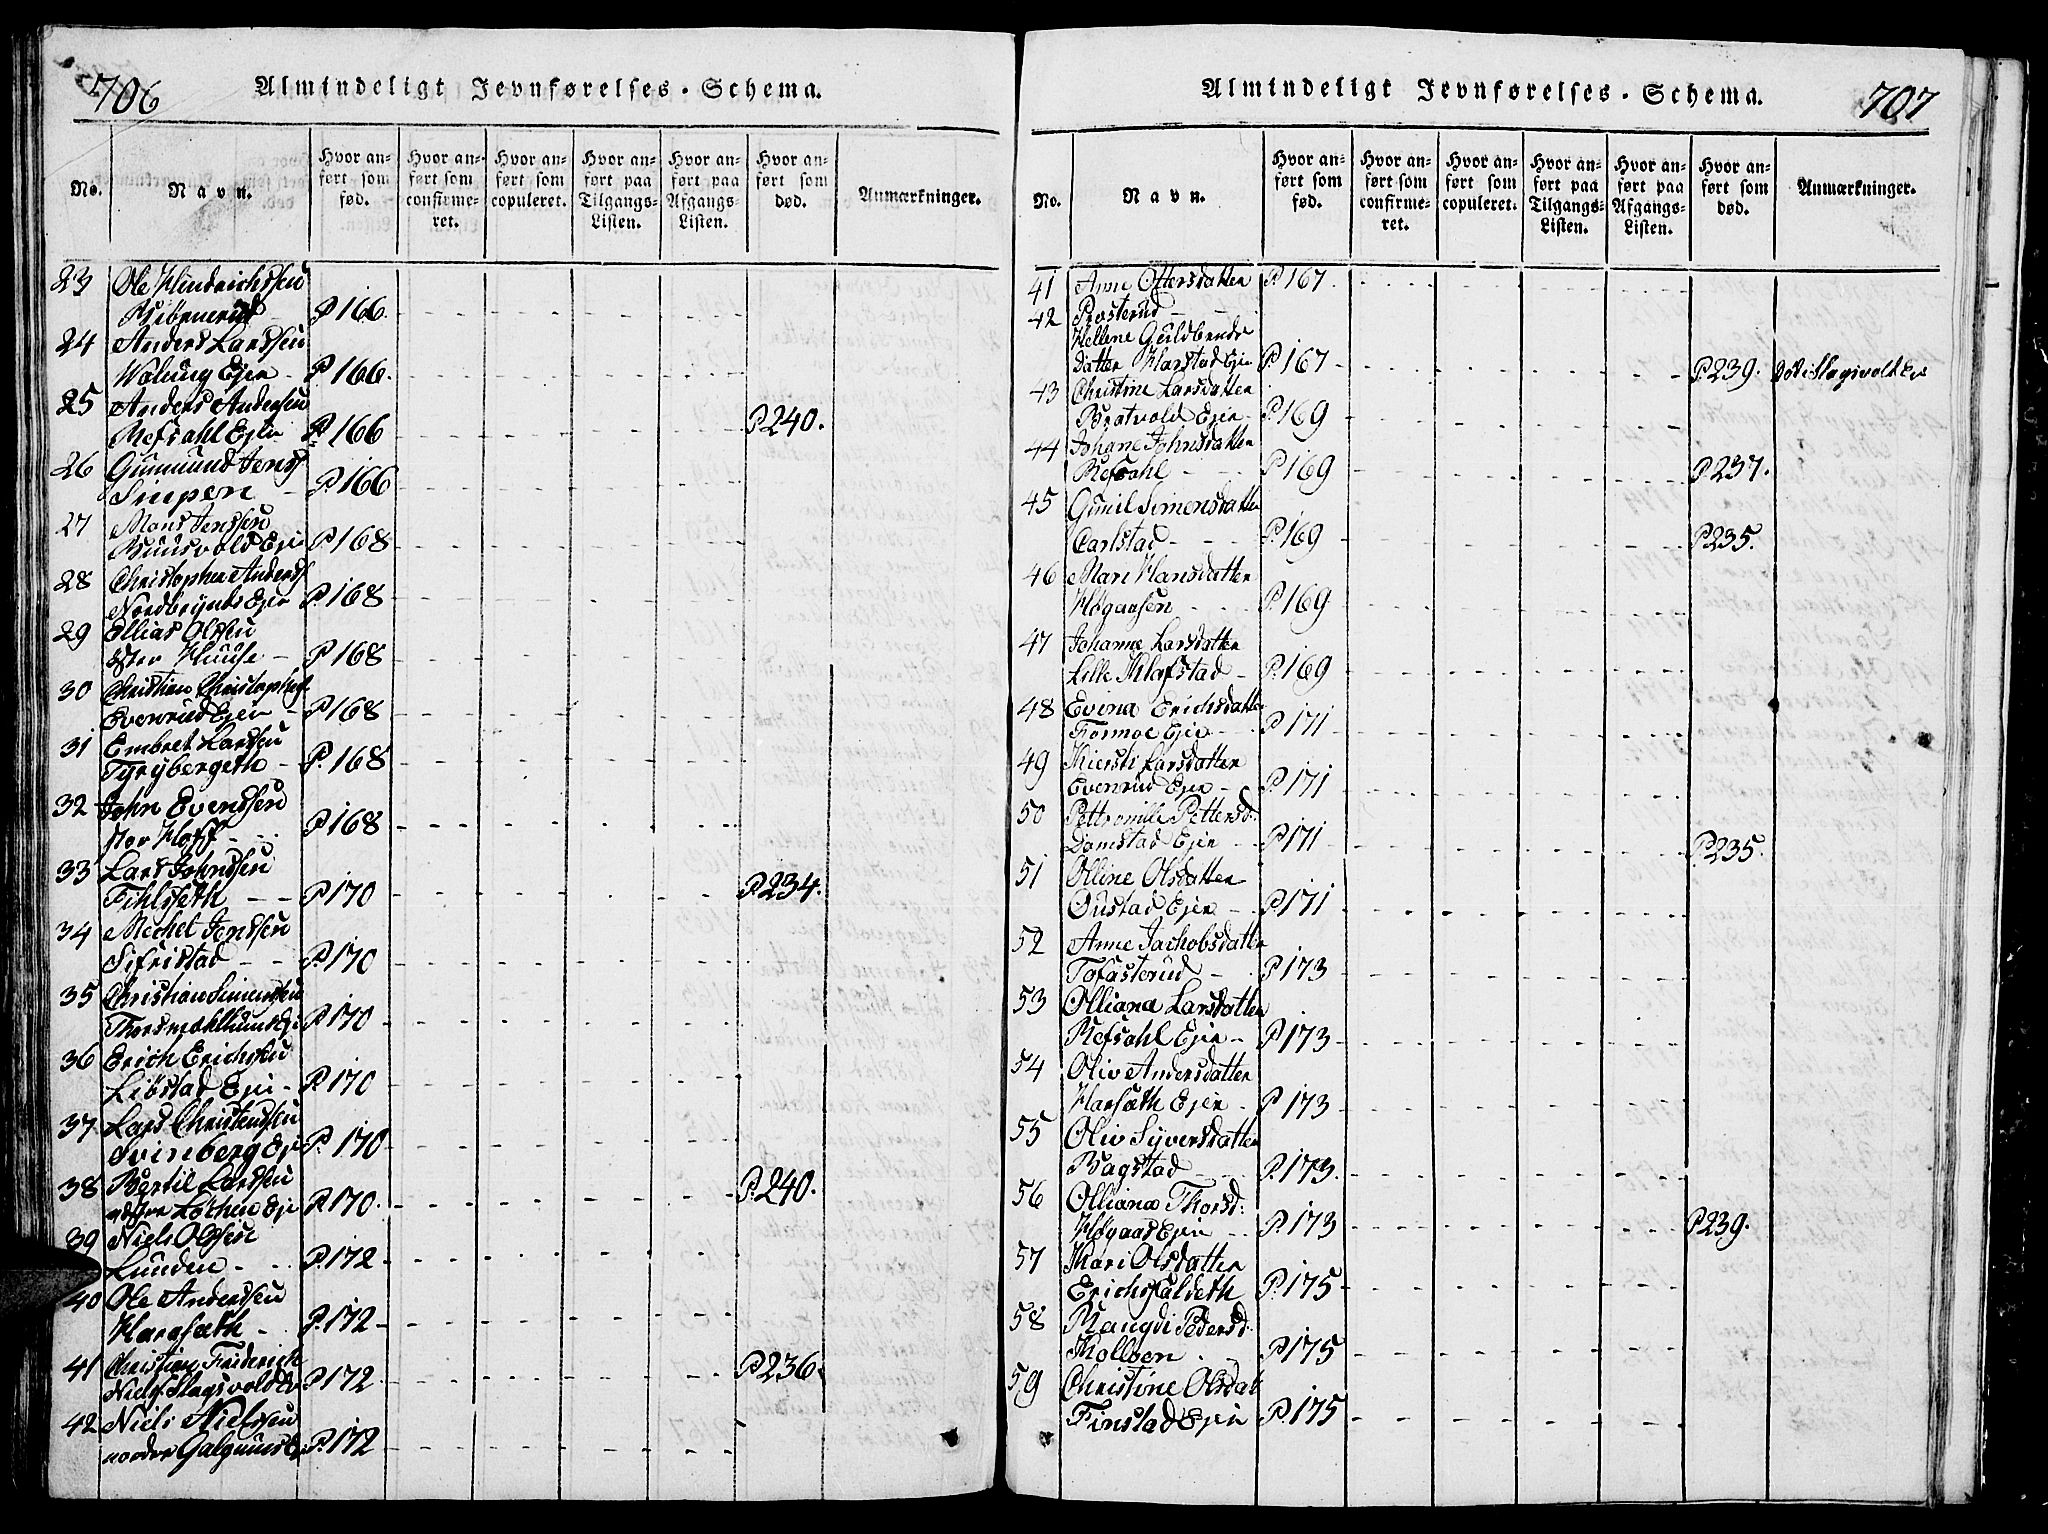 706
Almindeligt Jevnførelses-Schema.
No.
Navn.
Hvor anført som fød.
Hvor anført som confirmeret.
Hvor anført som copuleret.
Hvor anført paa Tilgangs-Listen.
Hvor anført paa Afgangs-Listen.
Hvor anført som død.
Anmærkninger.
23 Ole Hindrichssen
P 166.
24 Anders Larssen
Wolung Ejer P 166.
25 Anders Andersen
Refsahl Ejer P 166 P 240.
26 Gunmund Jens
Simpen P 166
27 Mons Jenssen
Ruusvold Eje P 168
28 Christopher Anders
Nordbrynds Ejer P. 168
29 Ellias Olssen
øster Huuse P 168
30 Christian Christophes
Evenrud Ejer P 168
31 Embret Larssen
Tyrybergeth P. 168
32 John Evenssen
stor Hoff P 168
33 Lars Johnssen
Fihlseth P. 170 P 234.
34 Mechel Jenssen
Sifristad P. 170
35 Christian Simenssen
P. 170
36 Erich Erichssen
Liøstad Eje P. 170
37 Lars Christenssen
Svinberg Eje P. 170
38 Bertil Larssen
østre Løthen Eje P. 170. P. 240.
39 Niels Olssen
Lunden P. 172
40 Ole Anderssen
Harsæth P. 172
41 Christian Friderich
Niels Slagsvold Ev P. 172 P. 236.
42 Niels Nielssen
nordre Galgum P. 172
707
Almindeligt Jevnførelses-Schema.
No.
Navn.
Hvor anført som fød.
Hvor anført som confirmeret.
Hvor anført som copuleret.
Hvor anført paa Tilgangs-Listen.
Hvor anført paa Afgangs-Listen.
Hvor anført som død.
Anmærkninger.
41 Anne Ottersdatter P. 167.
42 Prosterud
Hellene Guldbrands
datter Harstad Ejer P. 167 P 239. Slagsvold Eje
43 Christine Larsdatter
Brotvold Ejer P. 169
44 Johane Johnsdatter
Refsahl P. 169 P 237.
45 Gunil Simensdatter
Carlstad P. 169 P 235.
46 Mari Hansdatter
Høgaasen P. 169
47 Johanne Larsdatter
Lille Klafstad P. 169
48 Evina Erichsdatter
Formoe Ejer P 171
49 Kiersti Larsdatter
Evenrud Ejer P 171
50 Pettronille Pettersd:
Damstad Ejer P 171 P. 235.
51 Olline Olsdatter
Oustad Ejer P. 171
52 Anne Jachobsdatter
Tofasterud P. 173
53 Olliana Larsdatter
Refsahl Ejer P. 173
54 Oliv Andersdatter
Harsæth Ejer P. 173
55 Oliv Syversdatter
Bagstad P. 173.
56 Olliana Thorsd:
Høgaas Ejer P. 173 P 239.
57 Kari Olsdatter
Erichsfaldeth P. 175
58 Raugdi Pedersd:
Kolloen P. 175
59 Christine Olsdat
Finstad Ejer P. 175